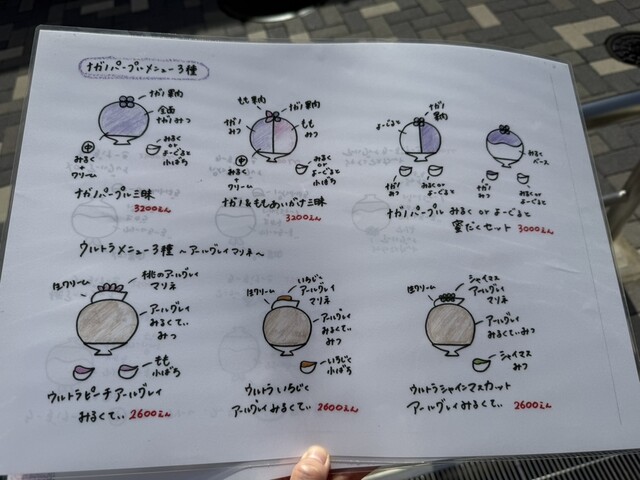 ナガノパープルメニュー3種
ナガノ果肉
全面
ナガノみつ
中
みるく
+
クリーム
みるく
or
よーぐると
小ばち
ナガノパープル三昧
3200えん
もも果肉
ナガノ果肉
ナガノ
みつ
もも
みつ
中
みるく
+
クリーム
みるく
or
よーぐると
小ばち
ナガノ&ももあいがけ三昧
3200えん
よーぐると
ナガノ
果肉
ナガノ
みつ
みるく or
よーぐると
みるく
ベース
ナガノ
みつ
みるく or
よーぐると
ナガノパープル みるく or よーぐると
蜜だくセット 3000えん
ウルトラメニュー3種 ~アールグレイマリネ~
ほクリーム
桃のアールグレイ
マリネ
アールグレイ
みるくてぃ
みつ
もも
小ばち
ウルトラピーチアールグレイ
みるくてぃ 2600えん
ほクリーム
いちじく
アールグレイ
マリネ
アールグレイ
みるくてぃ
みつ
いちじく
小ばち
ウルトラいちじく
アールグレイみるくてぃ 2600えん
ほクリーム
シャイマス
アールグレイ
マリネ
アールグレイ
みるくてぃ
みつ
シャイマス
みつ
ウルトラシャインマスカット
アールグレイみるくてぃ 2600えん